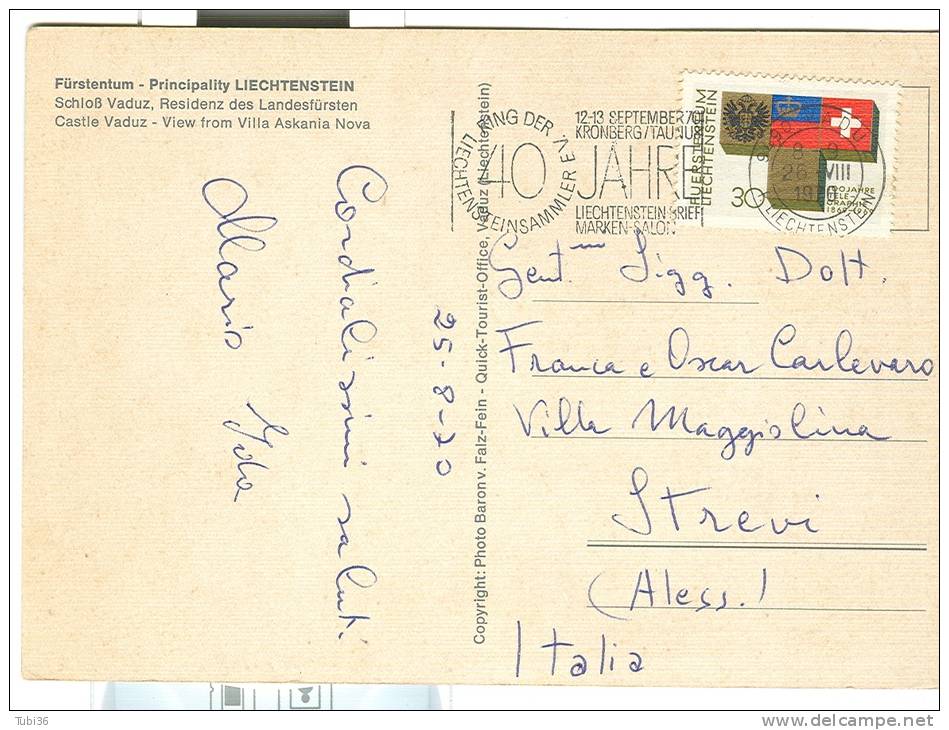 Fürstentum - Principality LIECHTENSTEIN
Schloß Vaduz, Residenz des Landesfürsten
Castle Vaduz - View from Villa Askania Nova
Cordialissimi saluti.
Mario Ida
25-8-70
Copyright: Photo Baron v. Falz-Fein - Quick-Tourist-Office, Vaduz (Liechtenstein)
RING DER
LIECHTENSTEINSAMMLER E.V.
40
12-13 SEPTEMBER 70
KRONBERG/TAUNUS
JAHRE
LIECHTENSTEIN-BRIEF
MARKEN-SALON
FUERSTENTUM
LIECHTENSTEIN
30
100 JAHRE
TELE-
GRAPHIE
1869-1969
26 VIII
1970
LIECHTENSTEIN
Gent.me Sigg. Dott.
Franca e Oscar Carlevaro
Villa Maggiolina
Strevi
(Aless.)
Italia
Tubi36
delcampe.net